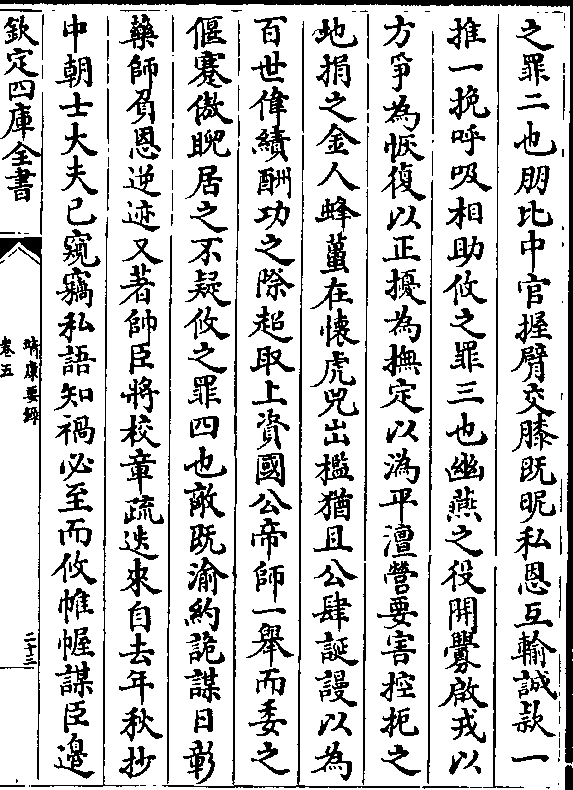 之罪二也朋比中官握臂交膝既昵私恩互輸誠款一
推一挽呼吸相助攸之罪三也幽燕之役開釁啟戎以
方爭為恢復以正擾為撫定以溈平澶營要害控扼之
地捐之金人蜂蠆在懷虎兕出檻猶且公肆誕謾以為
百世偉績酬功之際超取上資國公帝師一舉而委之
偃蹇傲睨居之不疑攸之罪四也敵既渝約詭謀日彰
藥師負恩逆迹又著帥臣將校章疏迭來自去年秋抄
中朝士大夫已窺竊私語知禍必至而攸帷幄謀臣邊
欽定四庫全書
靖康要錄
卷五
二十三